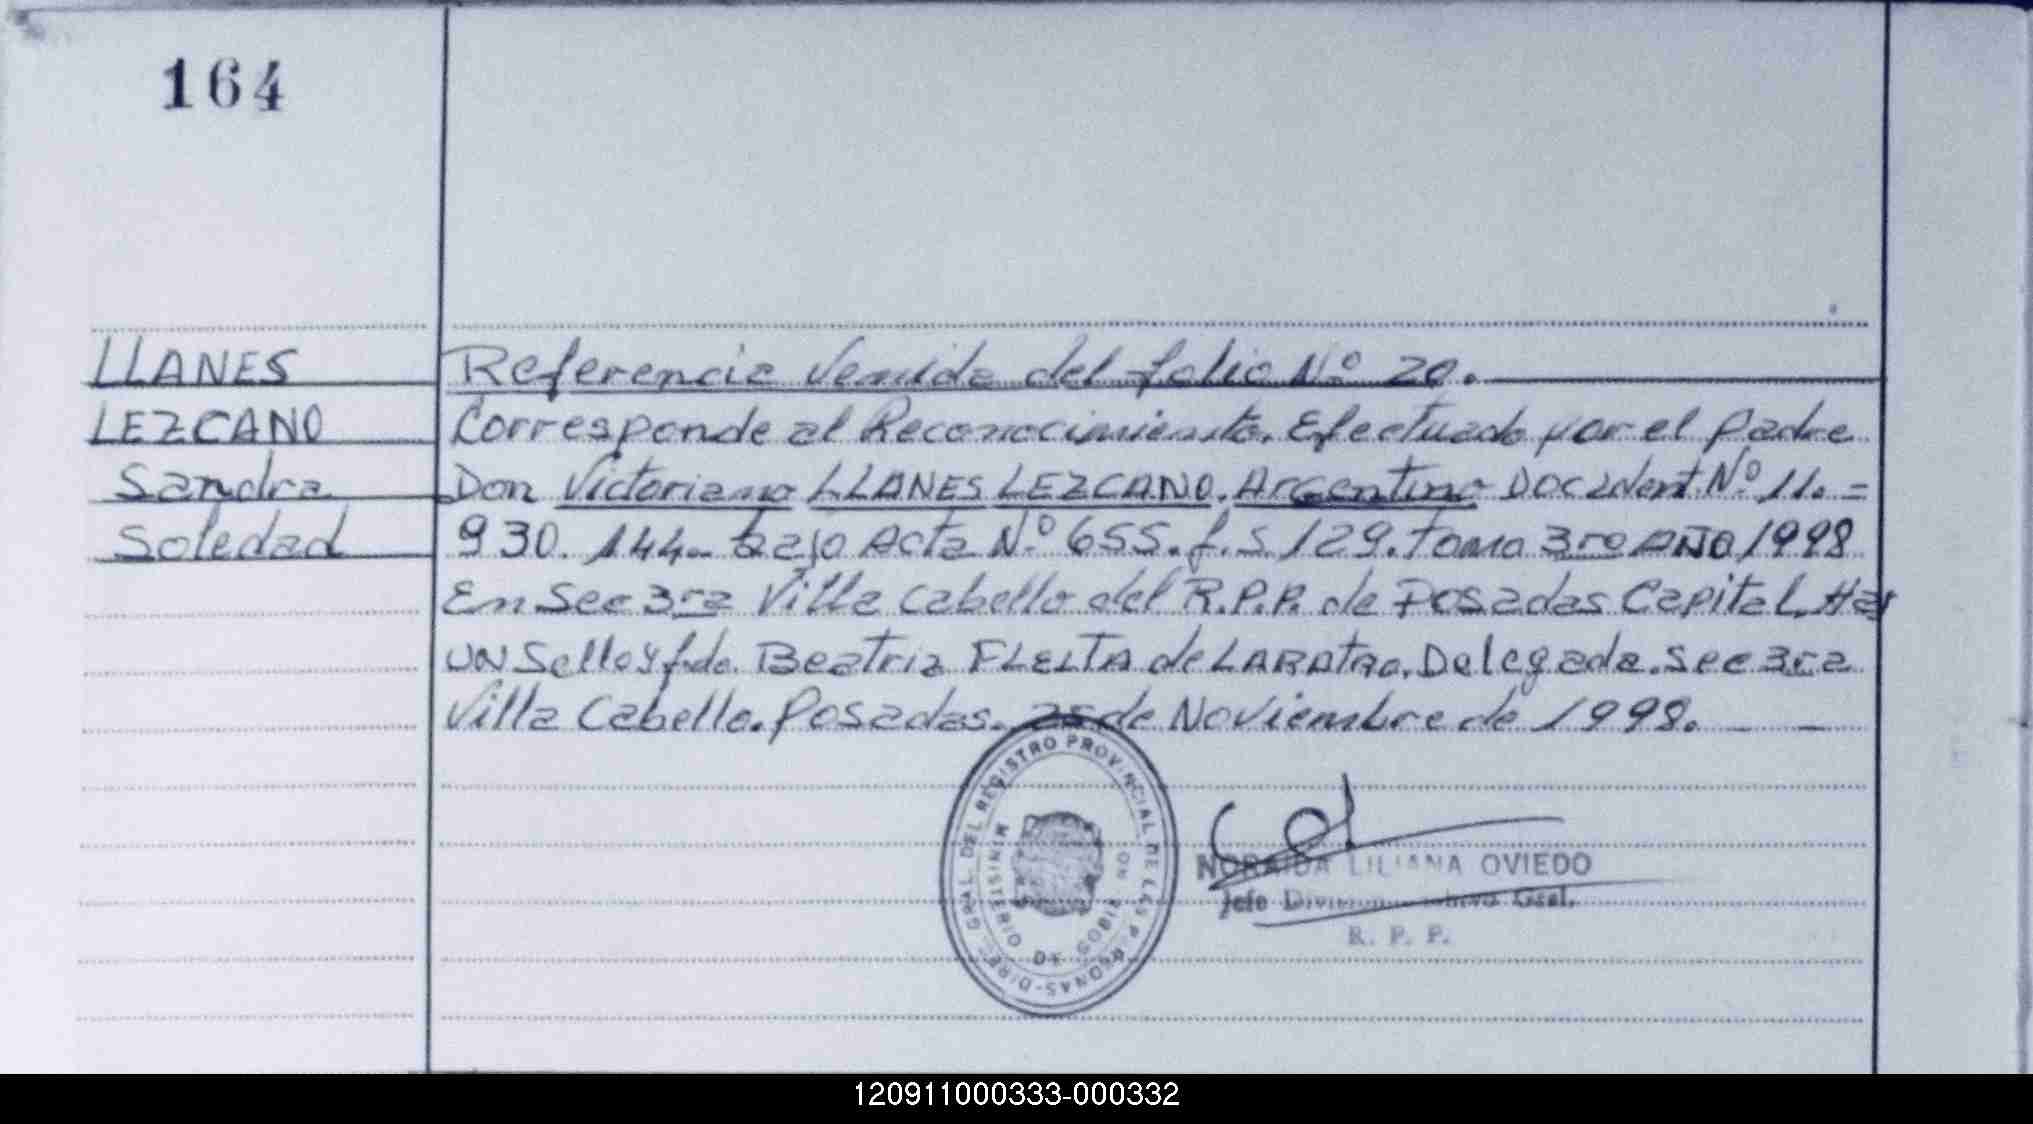 164
LLANES
LEZCANO
Sandra
Soledad
Referencia Venida del folio Nº 20.
Corresponde al Reconocimiento. Efectuado por el padre
Don Victoriano LLANES LEZCANO. Argentino Doc Ident. Nº 11.=
930. 144.- bajo Acta Nº 655. f.s 129. Tomo 3ro AÑO 1998
En Sec 3ra Villa Cabello del R.P.P. de Posadas Capital. Hay
UN Sello y fdo. Beatriz FLEITA de Delegada. Sec 3ra
Villa Cabello. Posadas. 25 de Noviembre de 1998.
DIREC. GRAL. DEL REGISTRO PROVINCIAL DE LAS PERSONAS
MINISTERIO DE GOBIERNO
NORAIDA LILIANA OVIEDO
Jefe División Archivo Gral.
R. P. P.
120911000333-000332